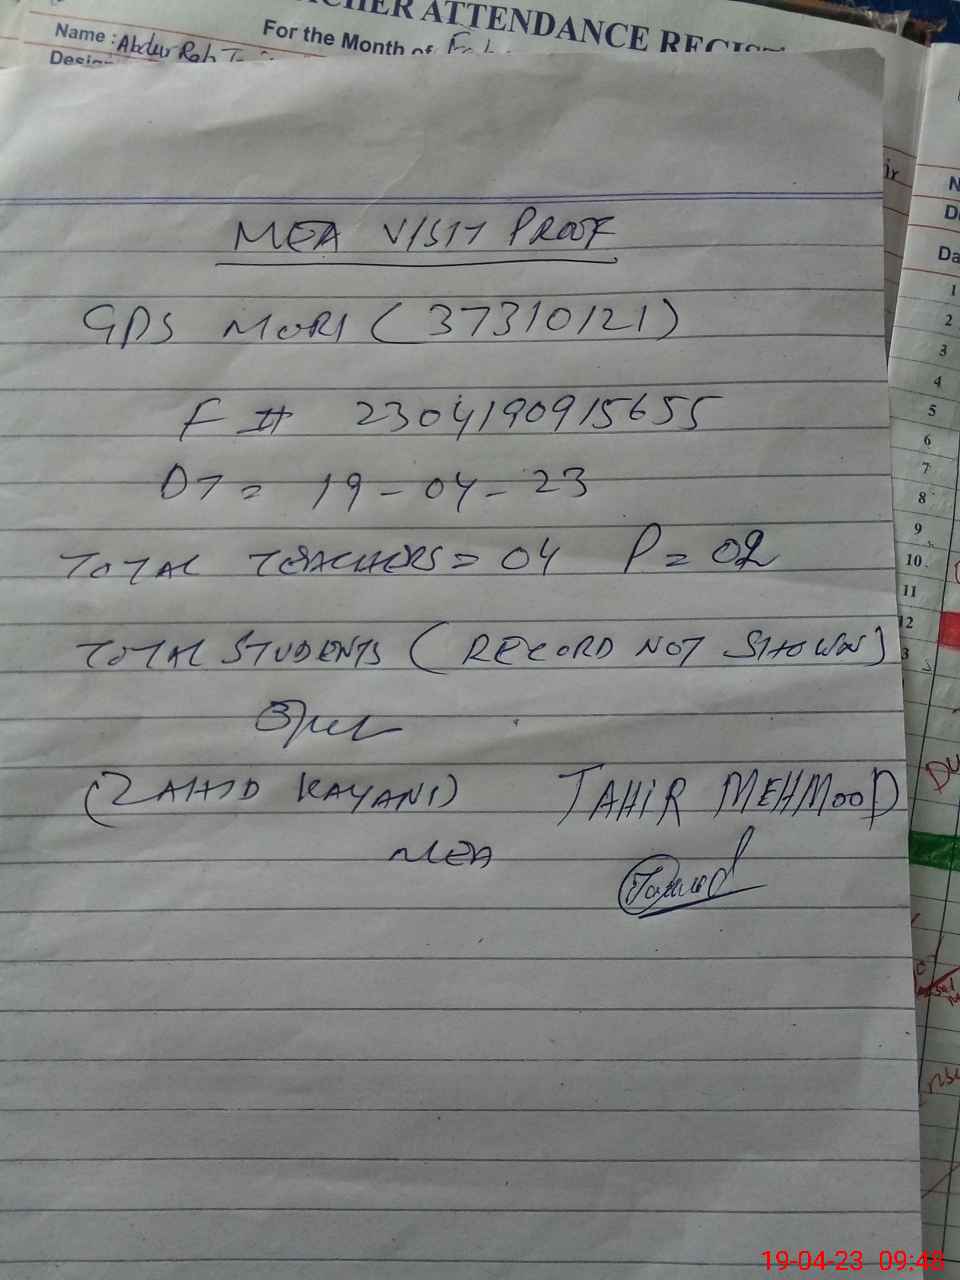 TEACHER ATTENDANCE REGIST
For the Month of
Name : Abdur Reh
Desig
MEA VISIT PROOF
GPS MORI (37310121)
F # 2304190915655
DT = 19-04-23
TOTAL TEACHERS = 04 P = 02
TOTAL STUDENTS (RECORD NOT SHOWN)
(ZAHID KAYANI) TAHIR MEHMOOD
MEA
N
D
Da
1
2
3
4
5
6
7
8
9
10
11
12
3
19-04-23 09:48